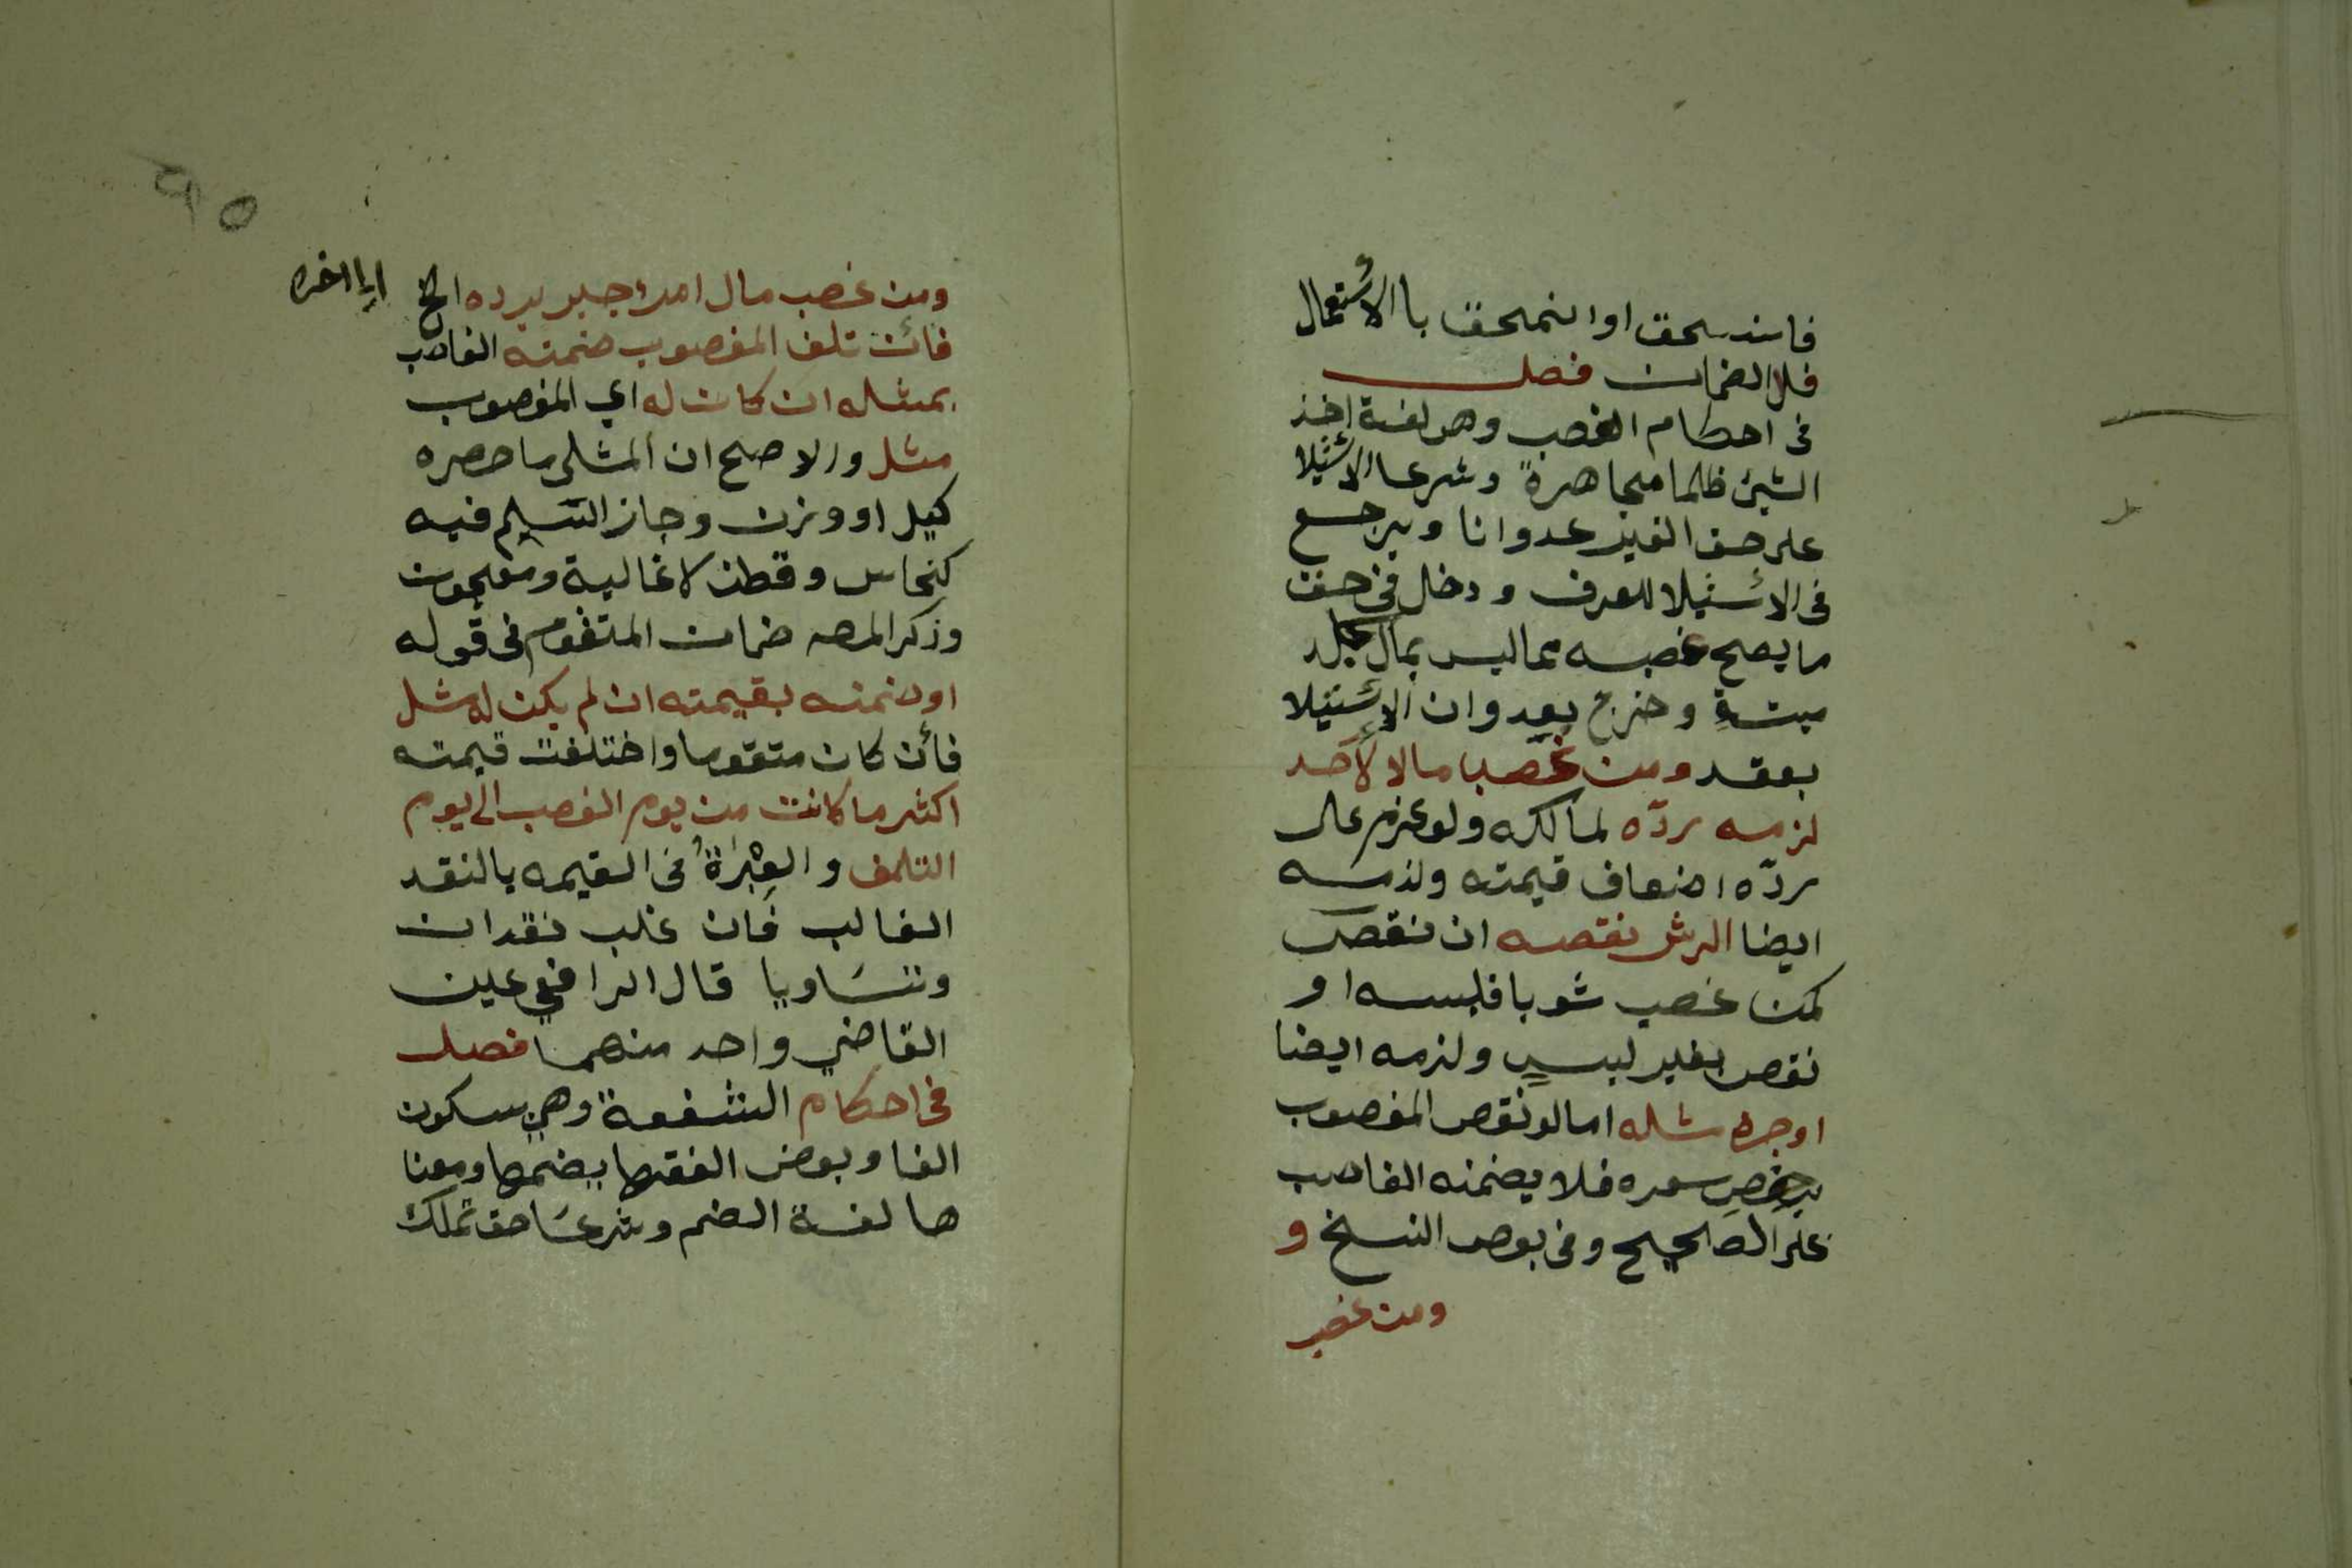 فانسحق او انمحق با الأستعمال
فلا الضمان فصل
فى احكام الغصب وهو لغة اخذ
الشئ ظلما مجاهرة وشرعا الأستيلا
على حق الغير عدوانا ويرجع
فى الأستيلا للعرف ودخل فى حق
ما يصح غصبه مما ليس بمال كجلد
ميتة وخرج بعدوان الأستيلا
بعقد ومن غصب مالا لأحد
لزمه ردّه لمالكه ولو غرم على
ردّه اضعاف قيمته ولزمه
ايضا ارش نقصه ان نقص
كمن غصب ثوبا فلبسه او
نقص بغير لبسٍ ولزمه ايضا
اوجره مثله اما لو نقص المغصوب
برخص سعره فلا يضمنه الغاصب
على الصحيح وفى بعض النسخ و
ومن غصب
ومن غصب مال امرء جبر برده الخ
ايا اخره
فأن تلف المغصوب ضمنه الغاصب
بمثله ان كان له اي المغصوب
مثل والاصح ان المثلى ما حصره
كيل او وزن وجاز التسليم فيه
كنحاس وقطن لا غالية ومعجون
وذكر المصـ ضمان المتقوم فى قوله
او ضمنه بقيمته ان لم يكن له مثل
فأن كان متقوما واختلفت قيمته
اكثر ما كانت من يوم الغصب الى يوم
التلف والعِبْرَةُ فى القيمه بالنقد
الغالب فَان غلب نقدان
وتسَاويا قال الرافعي عين
القاضي واحد منهما فصل
فى احكام الشفعة وهي بسكون
الفا وبعض الفقها يضمها ومعنا
ها لغة الضم وشرعَا حق تملك